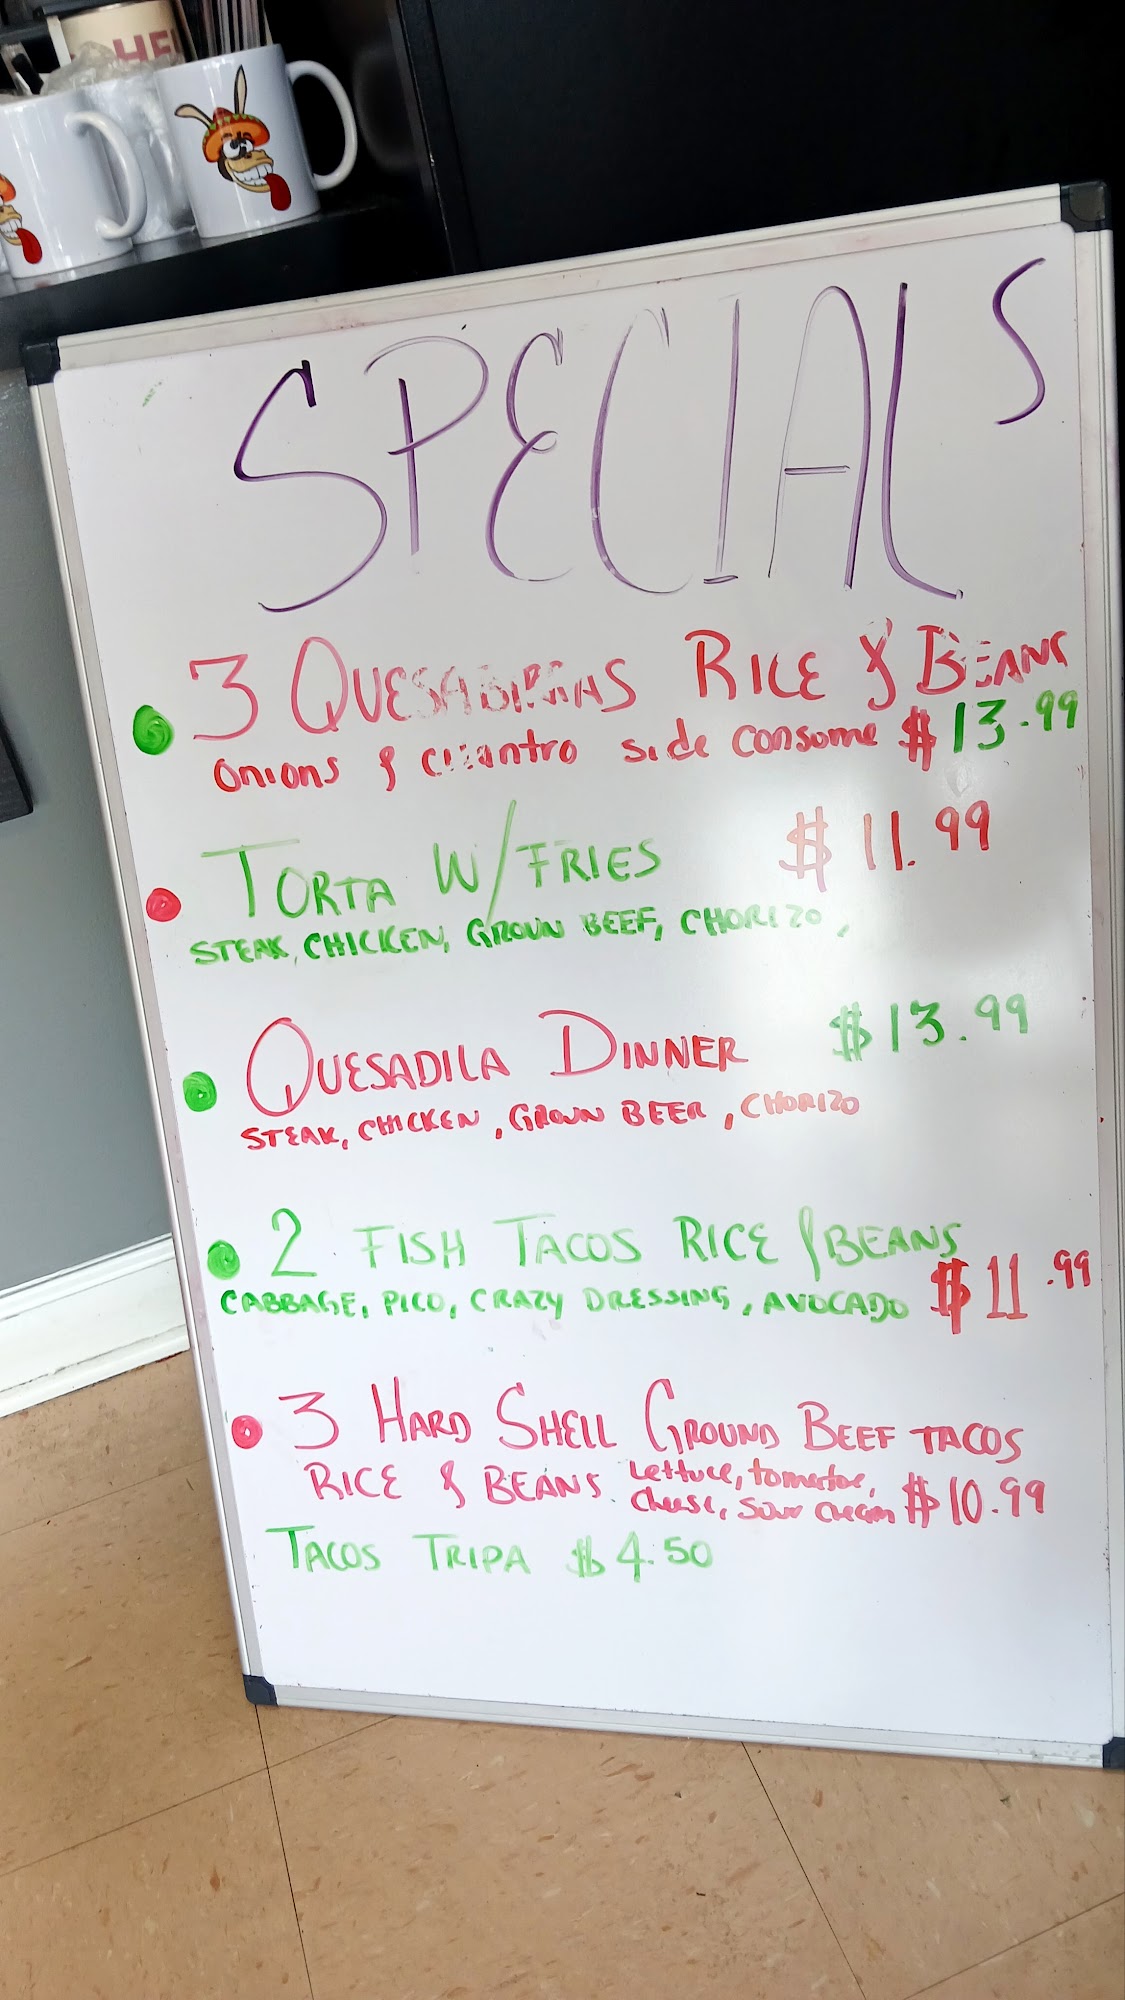 HE
SPECIALS
3 QUESABIRRIAS RICE & BEANS
onions & cilantro side consome $13.99
TORTA W/FRIES $11.99
STEAK, CHICKEN, GROUN BEEF, CHORIZO,
QUESADILA DINNER $13.99
STEAK, CHICKEN, GROUN BEER, CHORIZO
2 FISH TACOS RICE & BEANS
CABBAGE, PICO, CRAZY DRESSING, AVOCADO $11.99
3 HARD SHELL GROUND BEEF TACOS
RICE & BEANS Lettuce, tomatoe,
cheese, sour cream $10.99
TACOS TRIPA $4.50